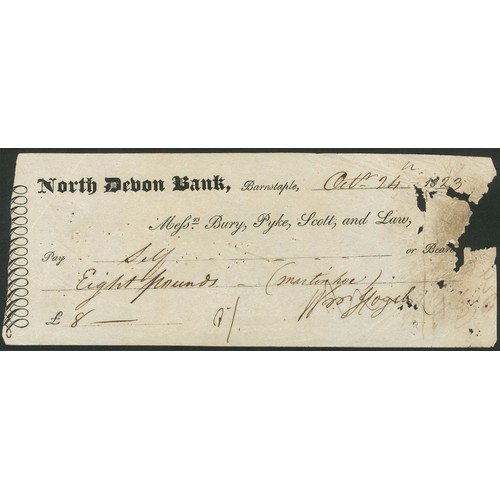 North Devon Bank, Barnstaple, Octr. 24 1823
Messrs. Bury, Pyke, Scott, and Law,
Pay Self or Bear
Eight pounds (martinhoe)
£ 8